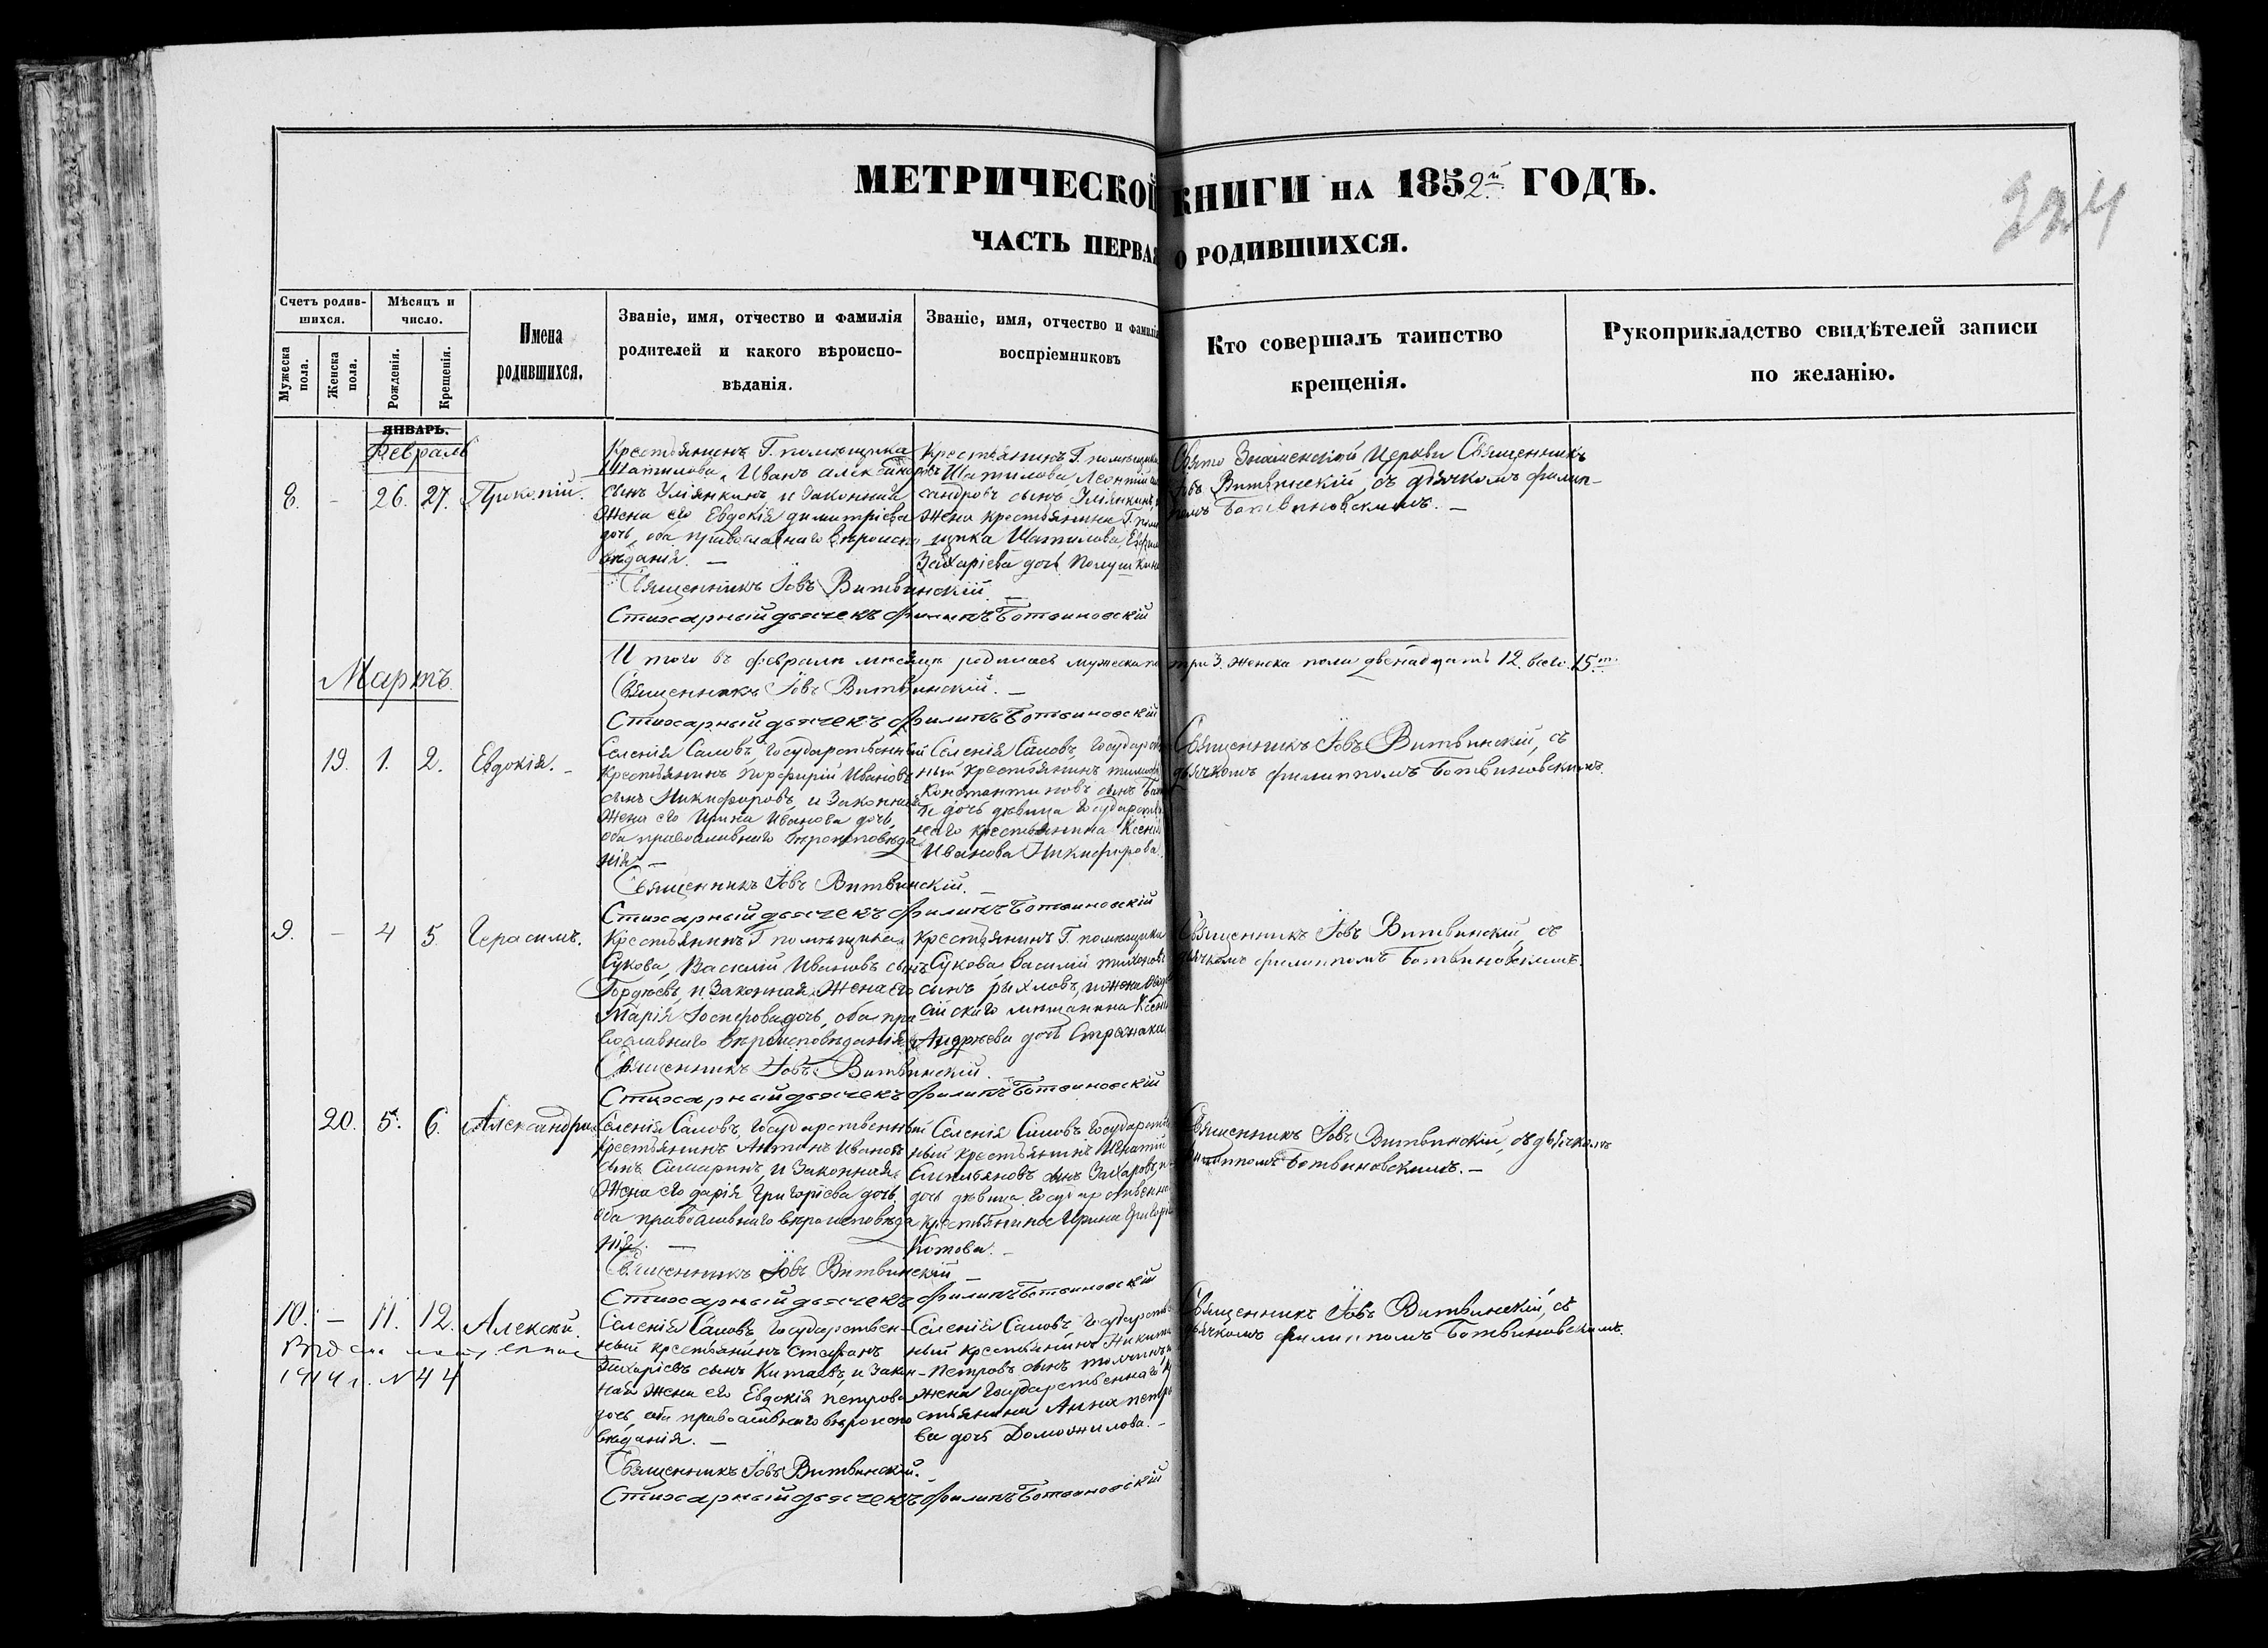 МЕТРИЧЕСКОЙ КНИГИ НА 1852й ГОДЪ.
224
ЧАСТЬ ПЕРВАЯ О РОДИВШИХСЯ.
Счетъ родив-
шихся.
Мужеска
пола.
Женска
пола.
Мѣсяцъ и
число.
Рожденія.
Крещенія.
Имена
родившихся.
Званіе, имя, отчество и фамилія
родителей и какого вѣроиспо-
вѣданія.
Званіе, имя, отчество и фамилія
воспріемниковъ
Кто совершалъ таинство
крещенія.
Рукоприкладство свидѣтелей записи
по желанію.
ЯНВАРЬ.
Февраль
8. - 26. 27. Прокопій.
Крестьянинъ Г. помѣщика
Шатилова, Иванъ Александровъ
сынъ Улянкинъ, и законная
жена его Евдокія Димитріева
дочь, оба православнаго вѣроиспо
вѣданія. —
Крестьянинъ Г. помѣщика
Шатилова, Леонтій
сандровъ сынъ Улянкинъ,
жена крестьянина Г. помѣ
щика Шатилова,
Захаріева дочь
Свято Знаменской Церкви Священникъ
Іовъ Витвинскій, съ дьячкомъ Филип-
помъ Ботвиновскимъ. —
Священникъ Іовъ Витвинскій —
Стихарный дьячекъ Филипъ Ботвиновскій
Итого въ февралѣ мѣсяцѣ родилось мужеска по три 3. женска пола двенадцать 12. всего 15.ть
Мартъ.
Священникъ Іовъ Витвинскій. —
Стихарный дьячекъ Филипъ Ботвиновскій
19. 1. 2. Евдокія. —
Селенія Саловъ, Государственный
крестьянинъ Порфирій Ивановъ
сынъ Никифоровъ, и Законная
жена его Ирина Иванова дочь,
оба православнаго вѣроисповѣда
нія. —
Селенія Саловъ, Государ
ный крестьянинъ
Константиновъ сынъ
и дочь дѣвица Государствен
наго крестьянина Ксенія
Иванова Никифорова.
Священникъ Іовъ Витвинскій, съ
дьячкомъ Филиппомъ Ботвиновскимъ.
Священникъ Іовъ Витвинскій. —
Стихарный дьячекъ Филипъ Ботвиновскій
9. - 4 5. Герасимъ.
Крестьянинъ Г помѣщика
Сукова, Василій Ивановъ сынъ
Гордѣевъ, и Законная жена его
Марія Іосифова дочь, оба пра
вославнаго вѣроисповѣданія
Крестьянинъ Г. помѣщика
Сукова Василій Тихоновъ
сынъ Рыхловъ, и жена
скаго мѣщанина Ксенія
Андреева дочь
Священникъ Іовъ Витвинскій, съ
дьячкомъ Филиппомъ Ботвиновскимъ.
Священникъ Іовъ Витвинскій.
Стихарный дьячекъ Филипъ Ботвиновскій
20. 5. 6. Александра
Селенія Саловъ, Государственный
крестьянинъ Антонъ Ивановъ
сынъ Самаринъ, и Законная
жена его Дарія Григоріева дочь,
оба православнаго вѣроисповѣда
нія. —
Селенія Саловъ Государствен
ный крестьянинъ Игнатій
Емильяновъ сынъ Захаровъ, и
дочь дѣвица Государственна
крестьянина Ирина Григорі
Котова. —
Священникъ Іовъ Витвинскій, съ дьячкомъ
Филиппомъ Ботвиновскимъ. —
Священникъ Іовъ Витвинскій —
Стихарный дьячекъ Филипъ Ботвиновскій
10. — 11. 12. Алексѣй.
1914 г. № 44
Селенія Саловъ, Государствен-
ный крестьянинъ Стефанъ
Захаріевъ сынъ Китаевъ, и Закон-
ная жена его Евдокія Петрова
дочь, оба православнаго вѣроиспо
вѣданія. —
Селенія Саловъ Государств
ный крестьянинъ Никита
Петровъ сынъ
жена Государственнаго кр
стьянина Анна Петр
ва дочь Доможилова. —
Священникъ Іовъ Витвинскій, съ
дьячкомъ Филиппомъ Ботвиновскимъ.
Священникъ Іовъ Витвинскій.
Стихарный дьячекъ Филипъ Ботвиновскій